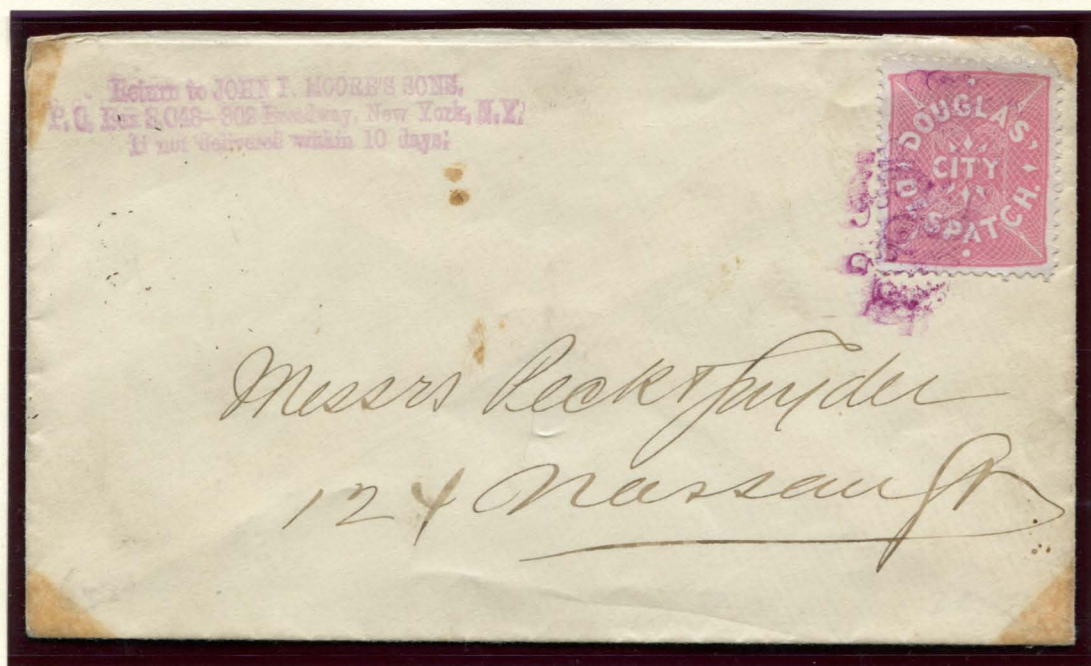 Return to JOHN P. MOORE'S SONS,
P. O. Box 3,048—302 Broadway, New York, N. Y.
If not delivered within 10 days.
DOUGLAS'
CITY
DESPATCH.
Messrs Peck & Snyder
124 Nassau St